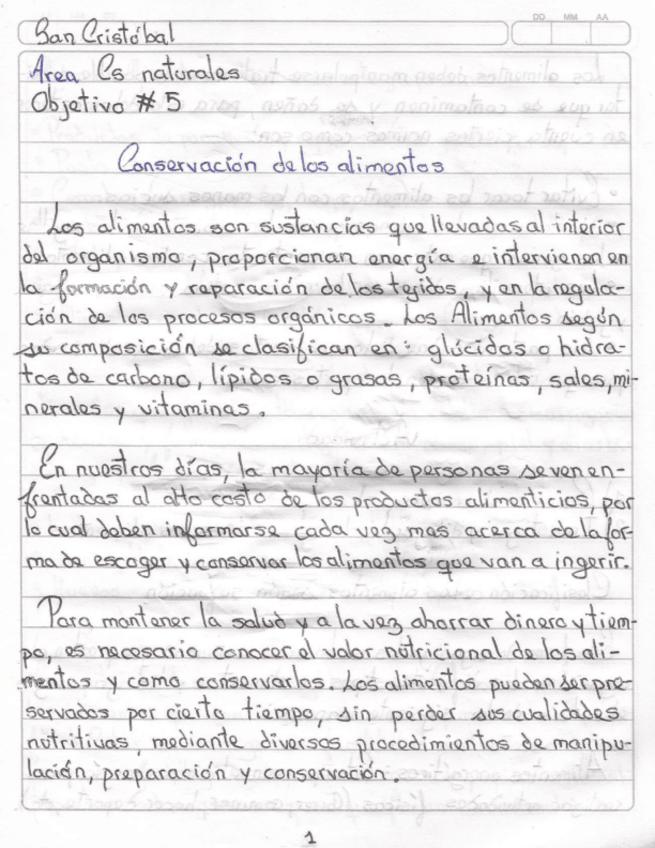 DD MM AA
San Cristóbal
Area Cs naturales
Objetivo # 5
Conservación de los alimentos
Los alimentos son sustancias que llevadas al interior
del organismo, proporcionan energía e intervienen en
la formación y reparación de los tejidos, y en la regula-
ción de los procesos orgánicos. Los Alimentos según
su composición se clasifican en: glúcidos o hidra-
tos de carbono, lípidos o grasas, proteínas, sales, mi-
nerales y vitaminas.
En nuestros días, la mayoría de personas se ven en-
frentadas al alto costo de los productos alimenticios, por
lo cual deben informarse cada vez mas acerca de la for-
ma de escoger y conservar los alimentos que van a ingerir.
Para mantener la salud y a la vez ahorrar dinero y tiem-
po, es necesario conocer el valor nutricional de los ali-
mentos y como conservarlos. Los alimentos pueden ser pre-
servados por cierto tiempo, sin perder sus cualidades
nutritivas, mediante diversos procedimientos de manipu-
lación, preparación y conservación.
1